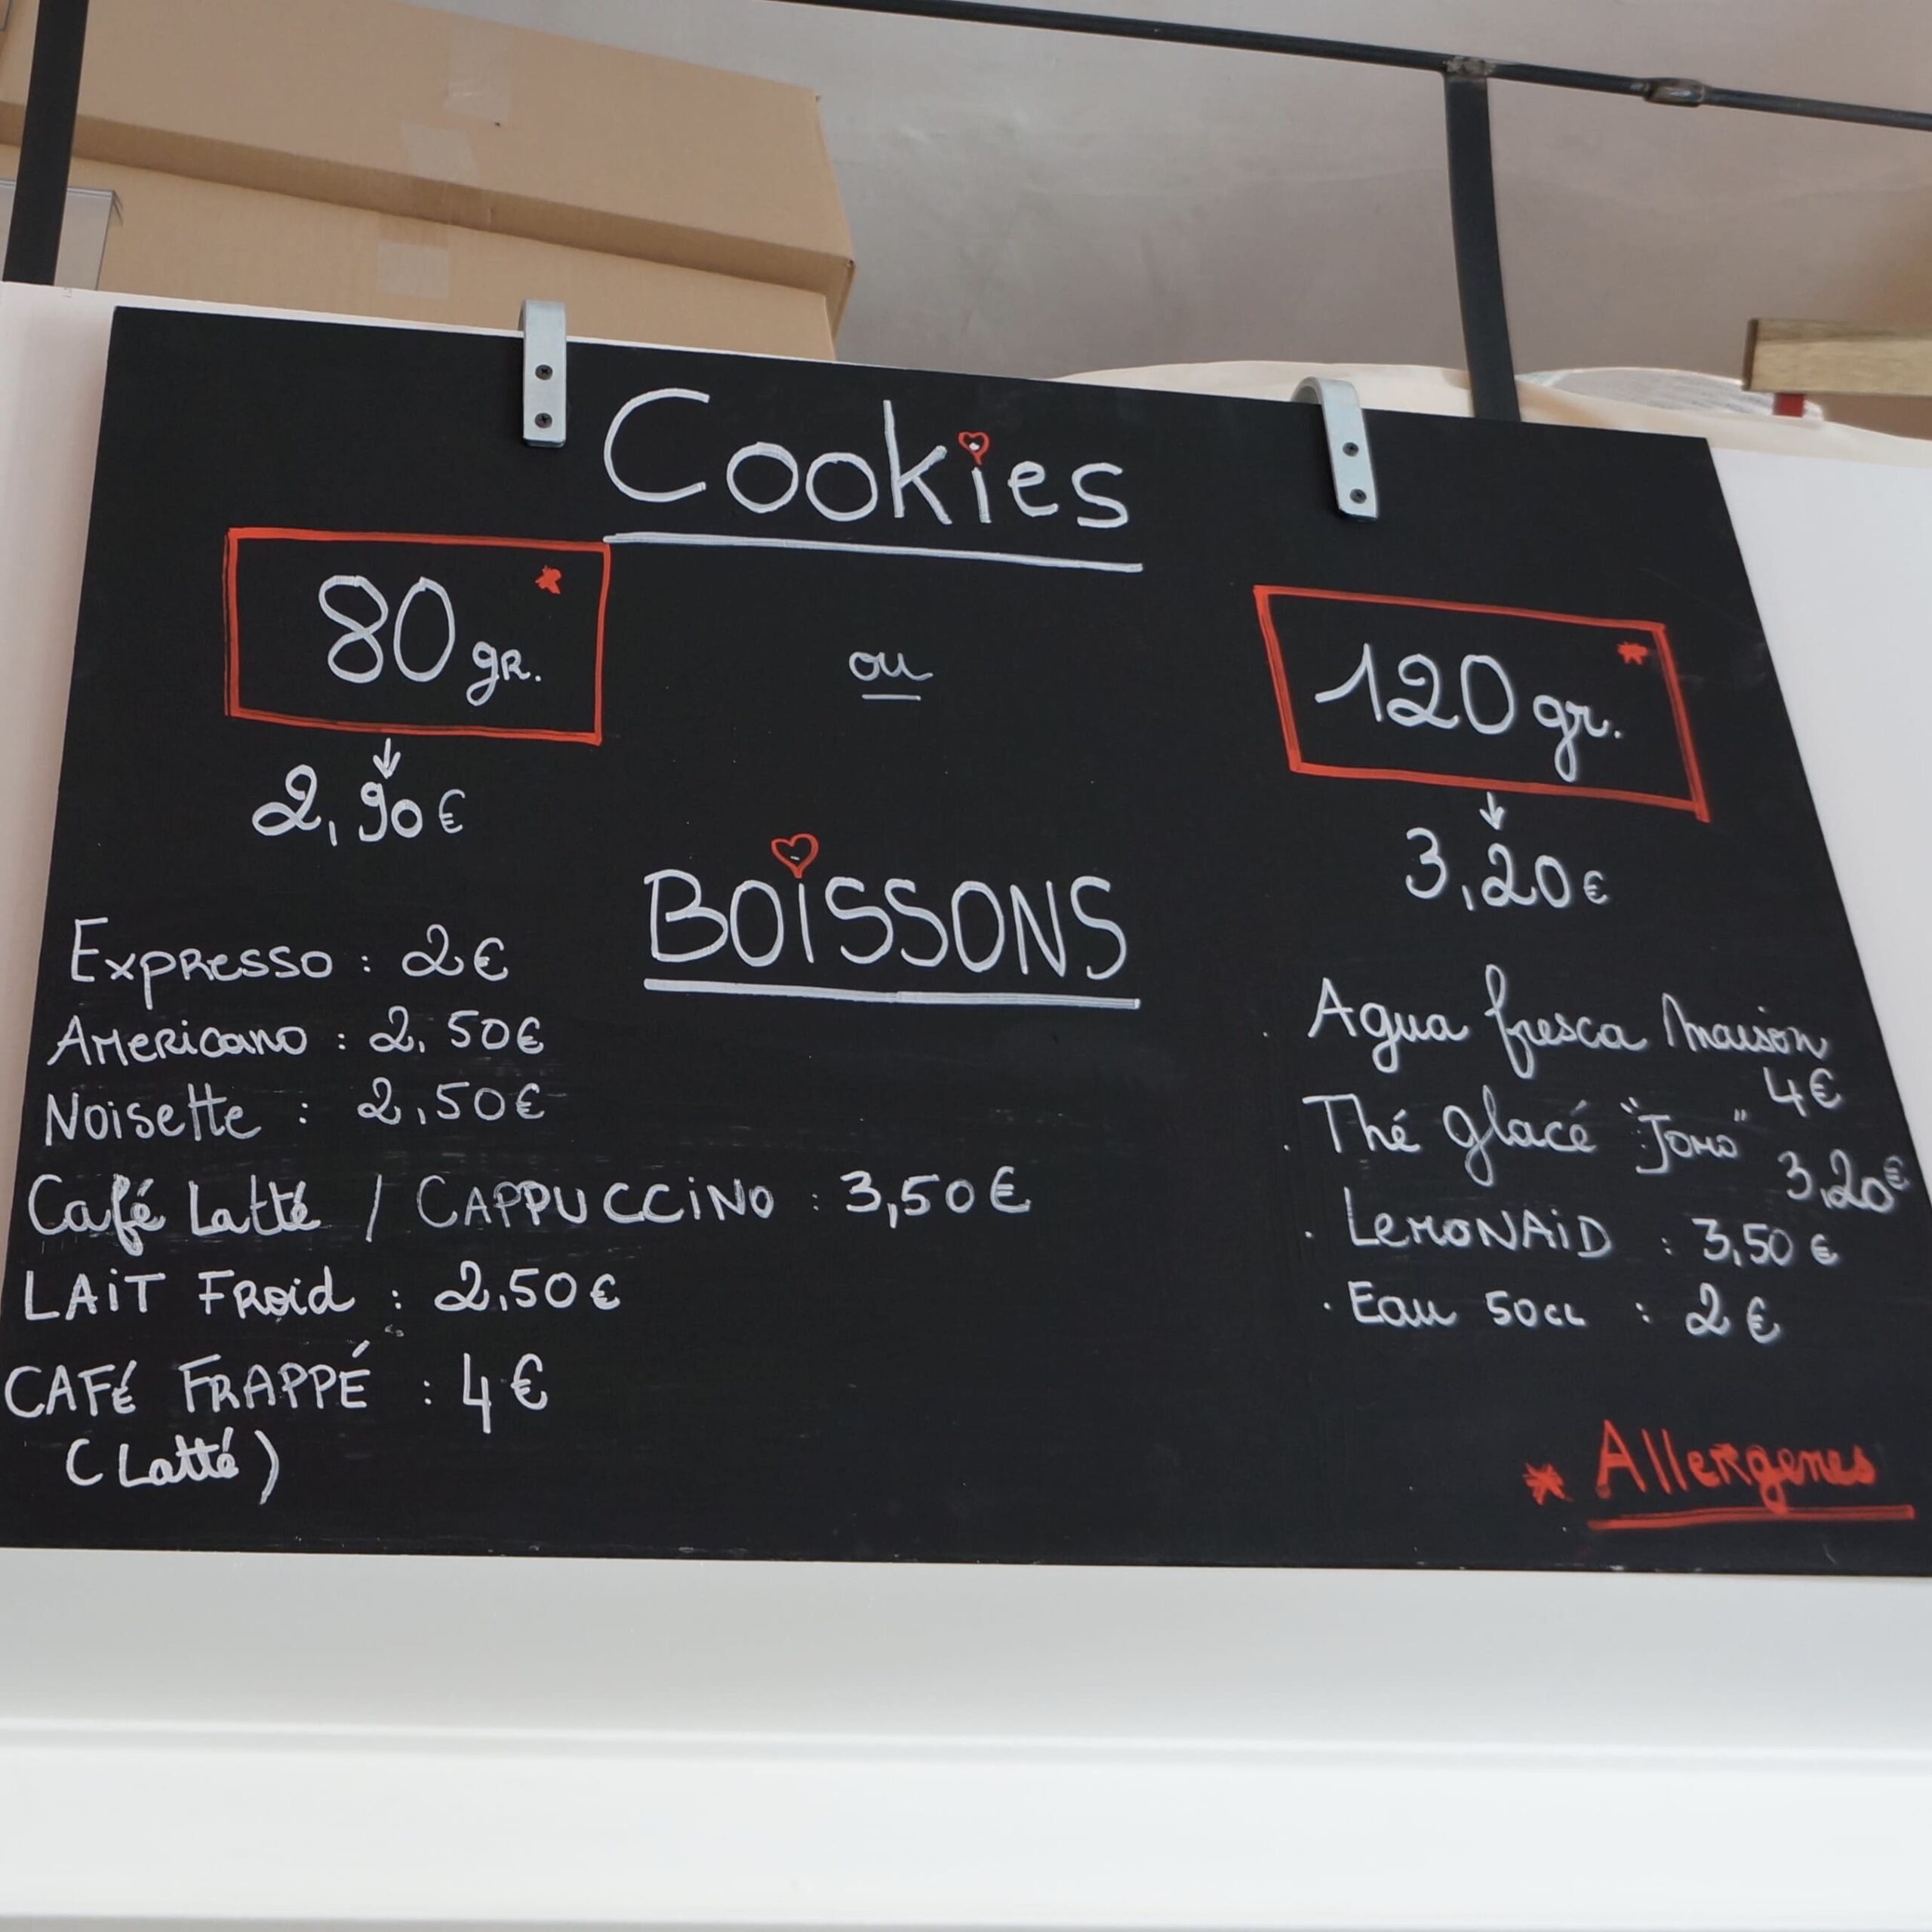 Cookies
80 gR. *
ou
120 gr. *
2,90€
3,20€
BOiSSONS
Expresso : 2€
Americano : 2,50€
Noisette : 2,50€
Café Latté / CAPPUCCiNO : 3,50€
LAiT FRoid : 2,50€
CAFé FRAPPÉ : 4€
(Latté)
. Agua fresca Maison
4€
. Thé glacé "JOMO"
3,20€
. LeMONAiD : 3,50€
. Eau 50cL : 2€
* Allergenes